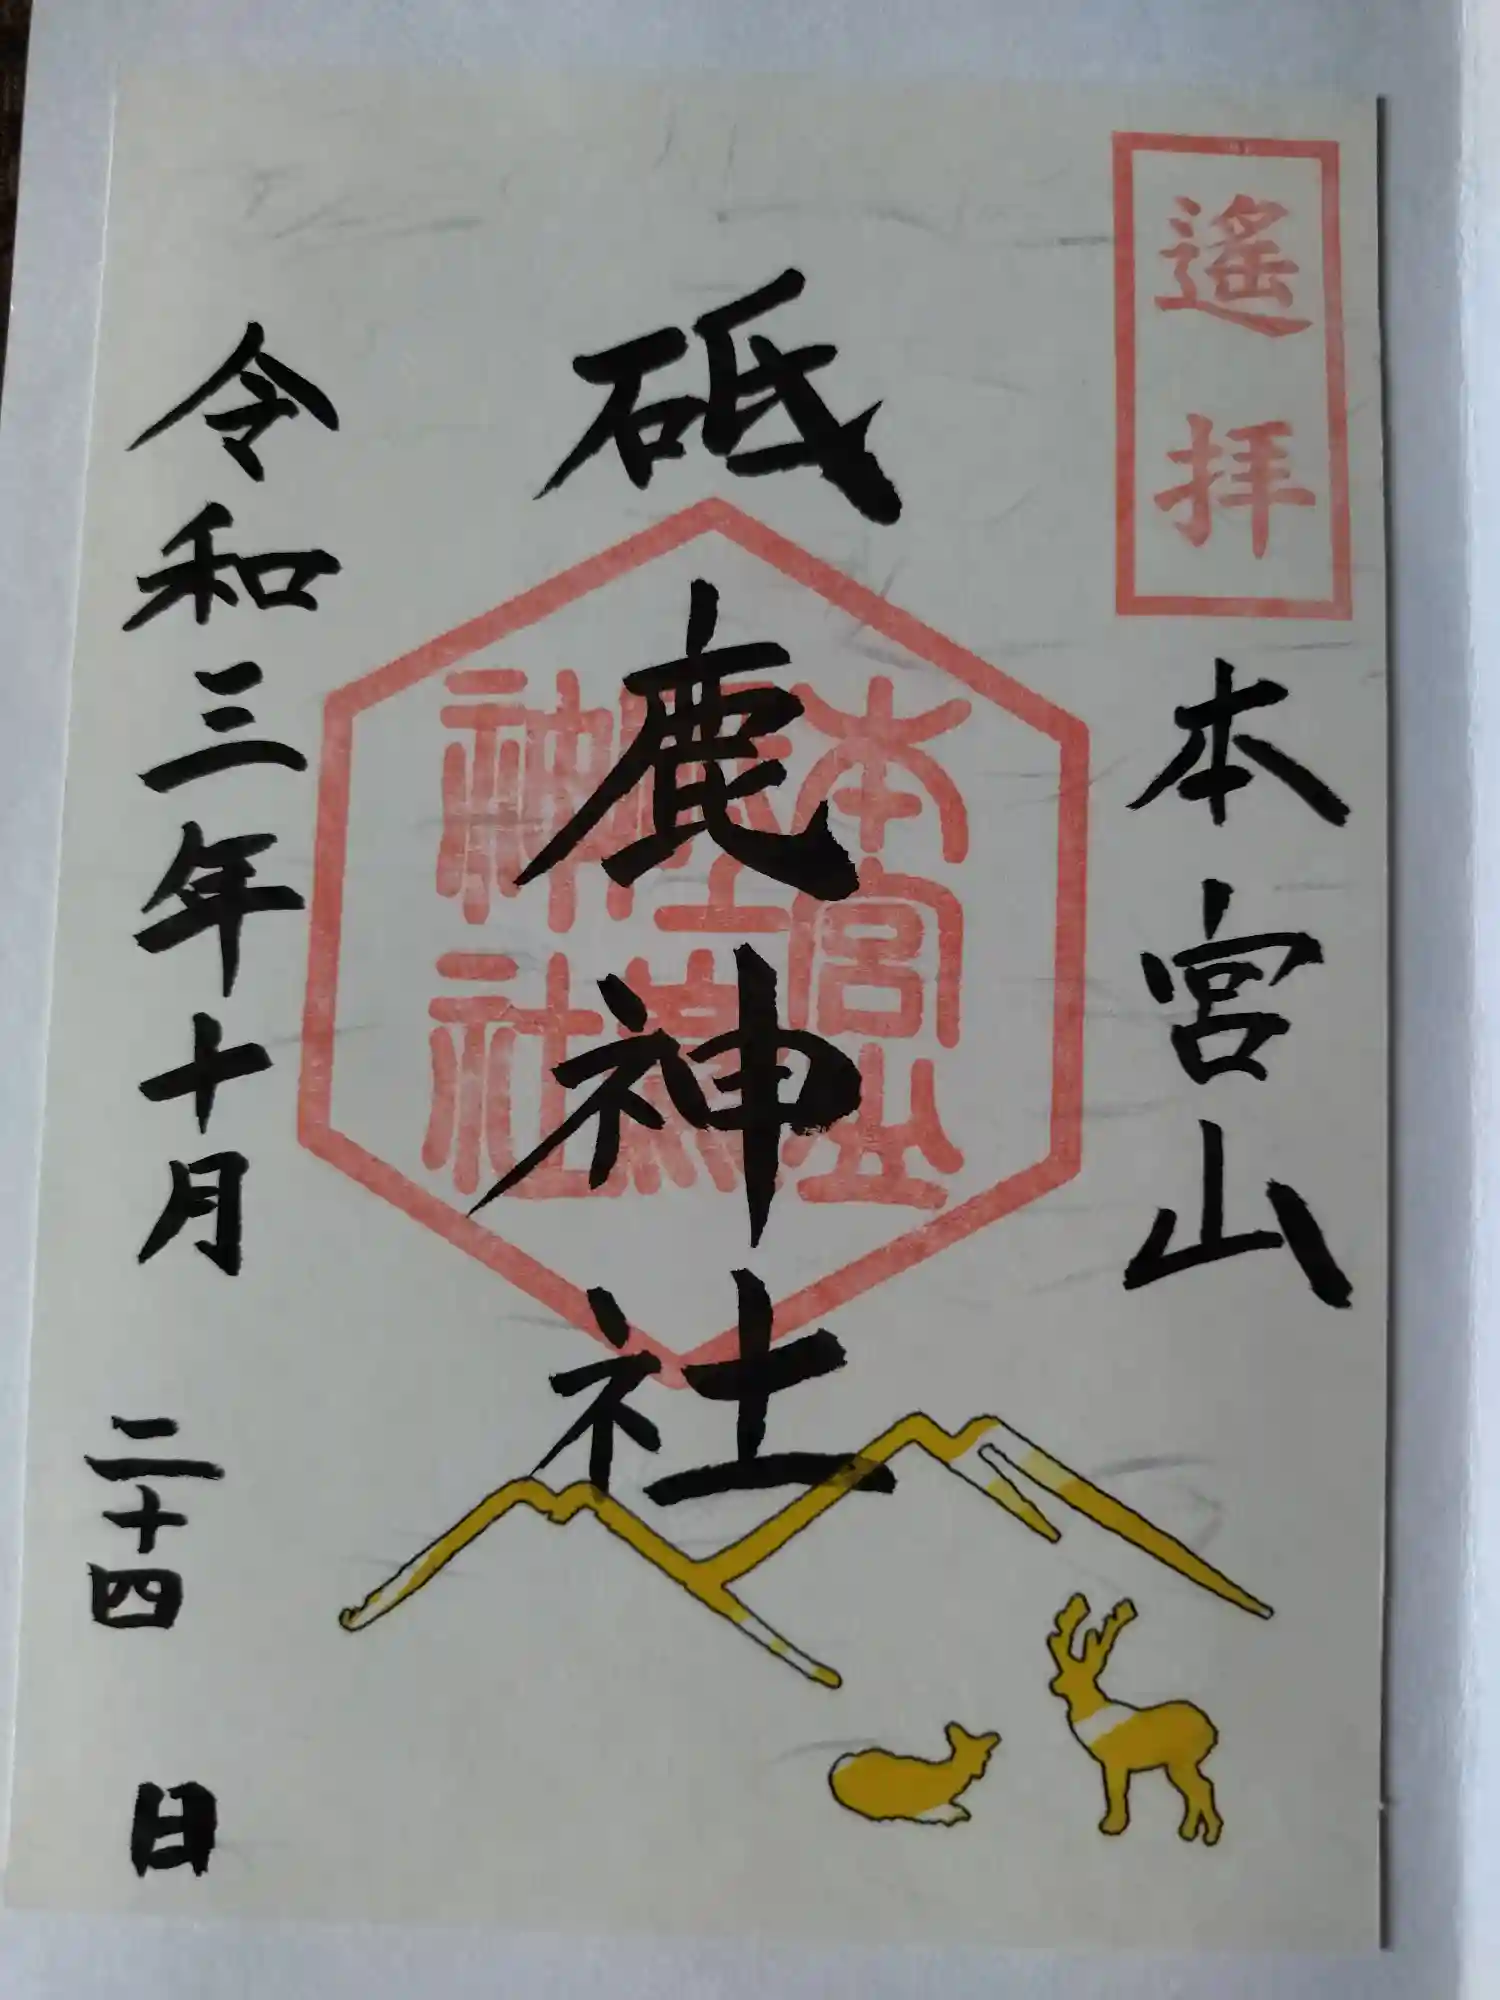 遙拝
本宮山
砥鹿神社
本宮山
砥鹿
神社
令和三年十月二十四日